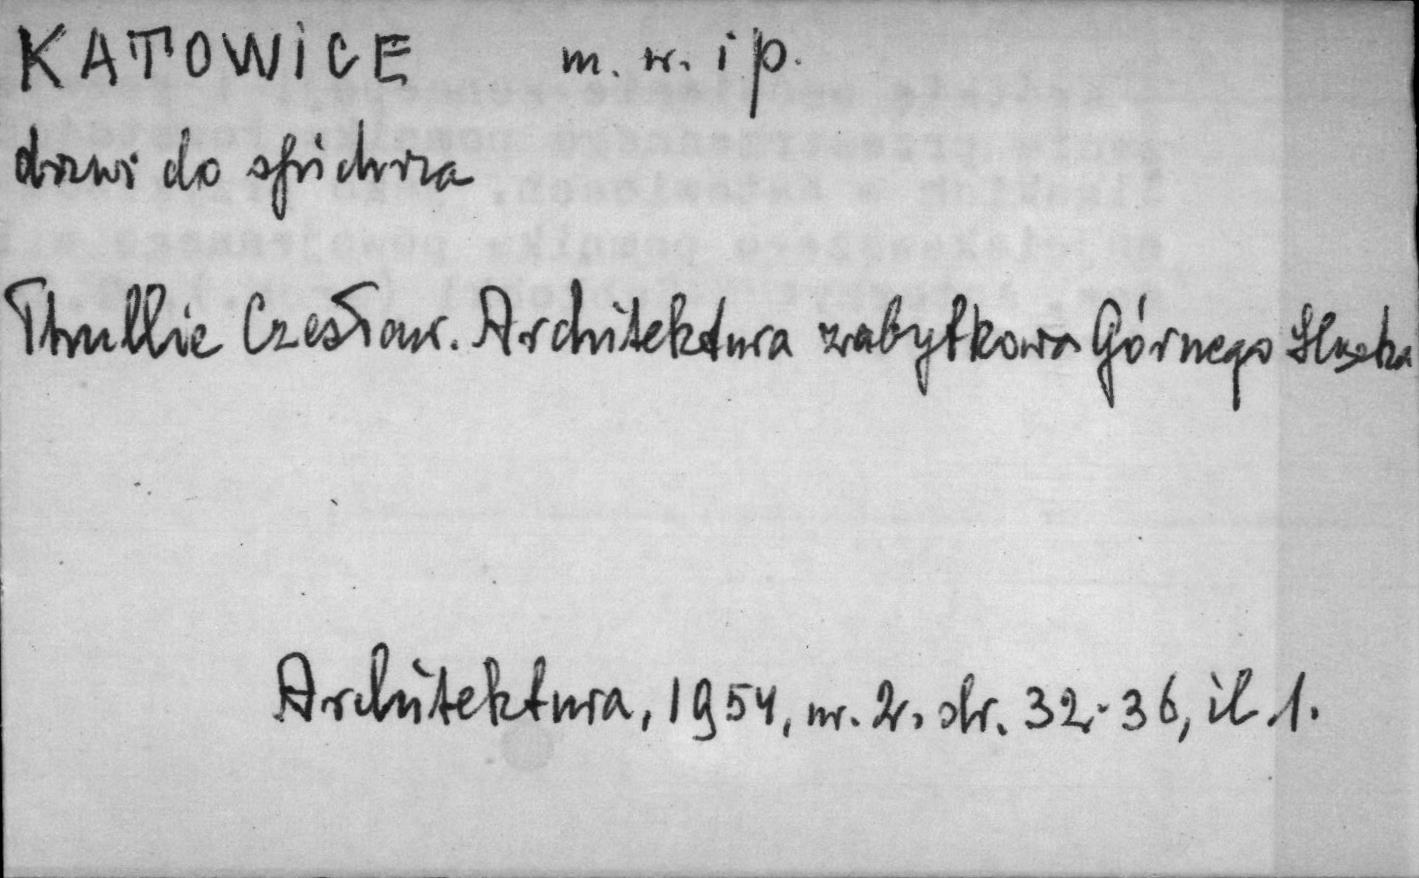 KATOWICE m. w. i p.
drzwi do spichrza
Thullie Czesław. Architektura zabytkowa Górnego Śląska
Architektura, 1954, nr. 2, str. 32-36, il 1.